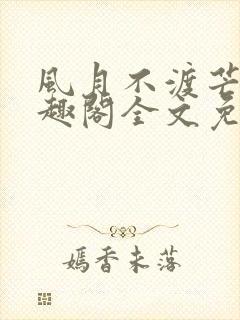 風月不渡芒
趣閣全文免
嫣香未落